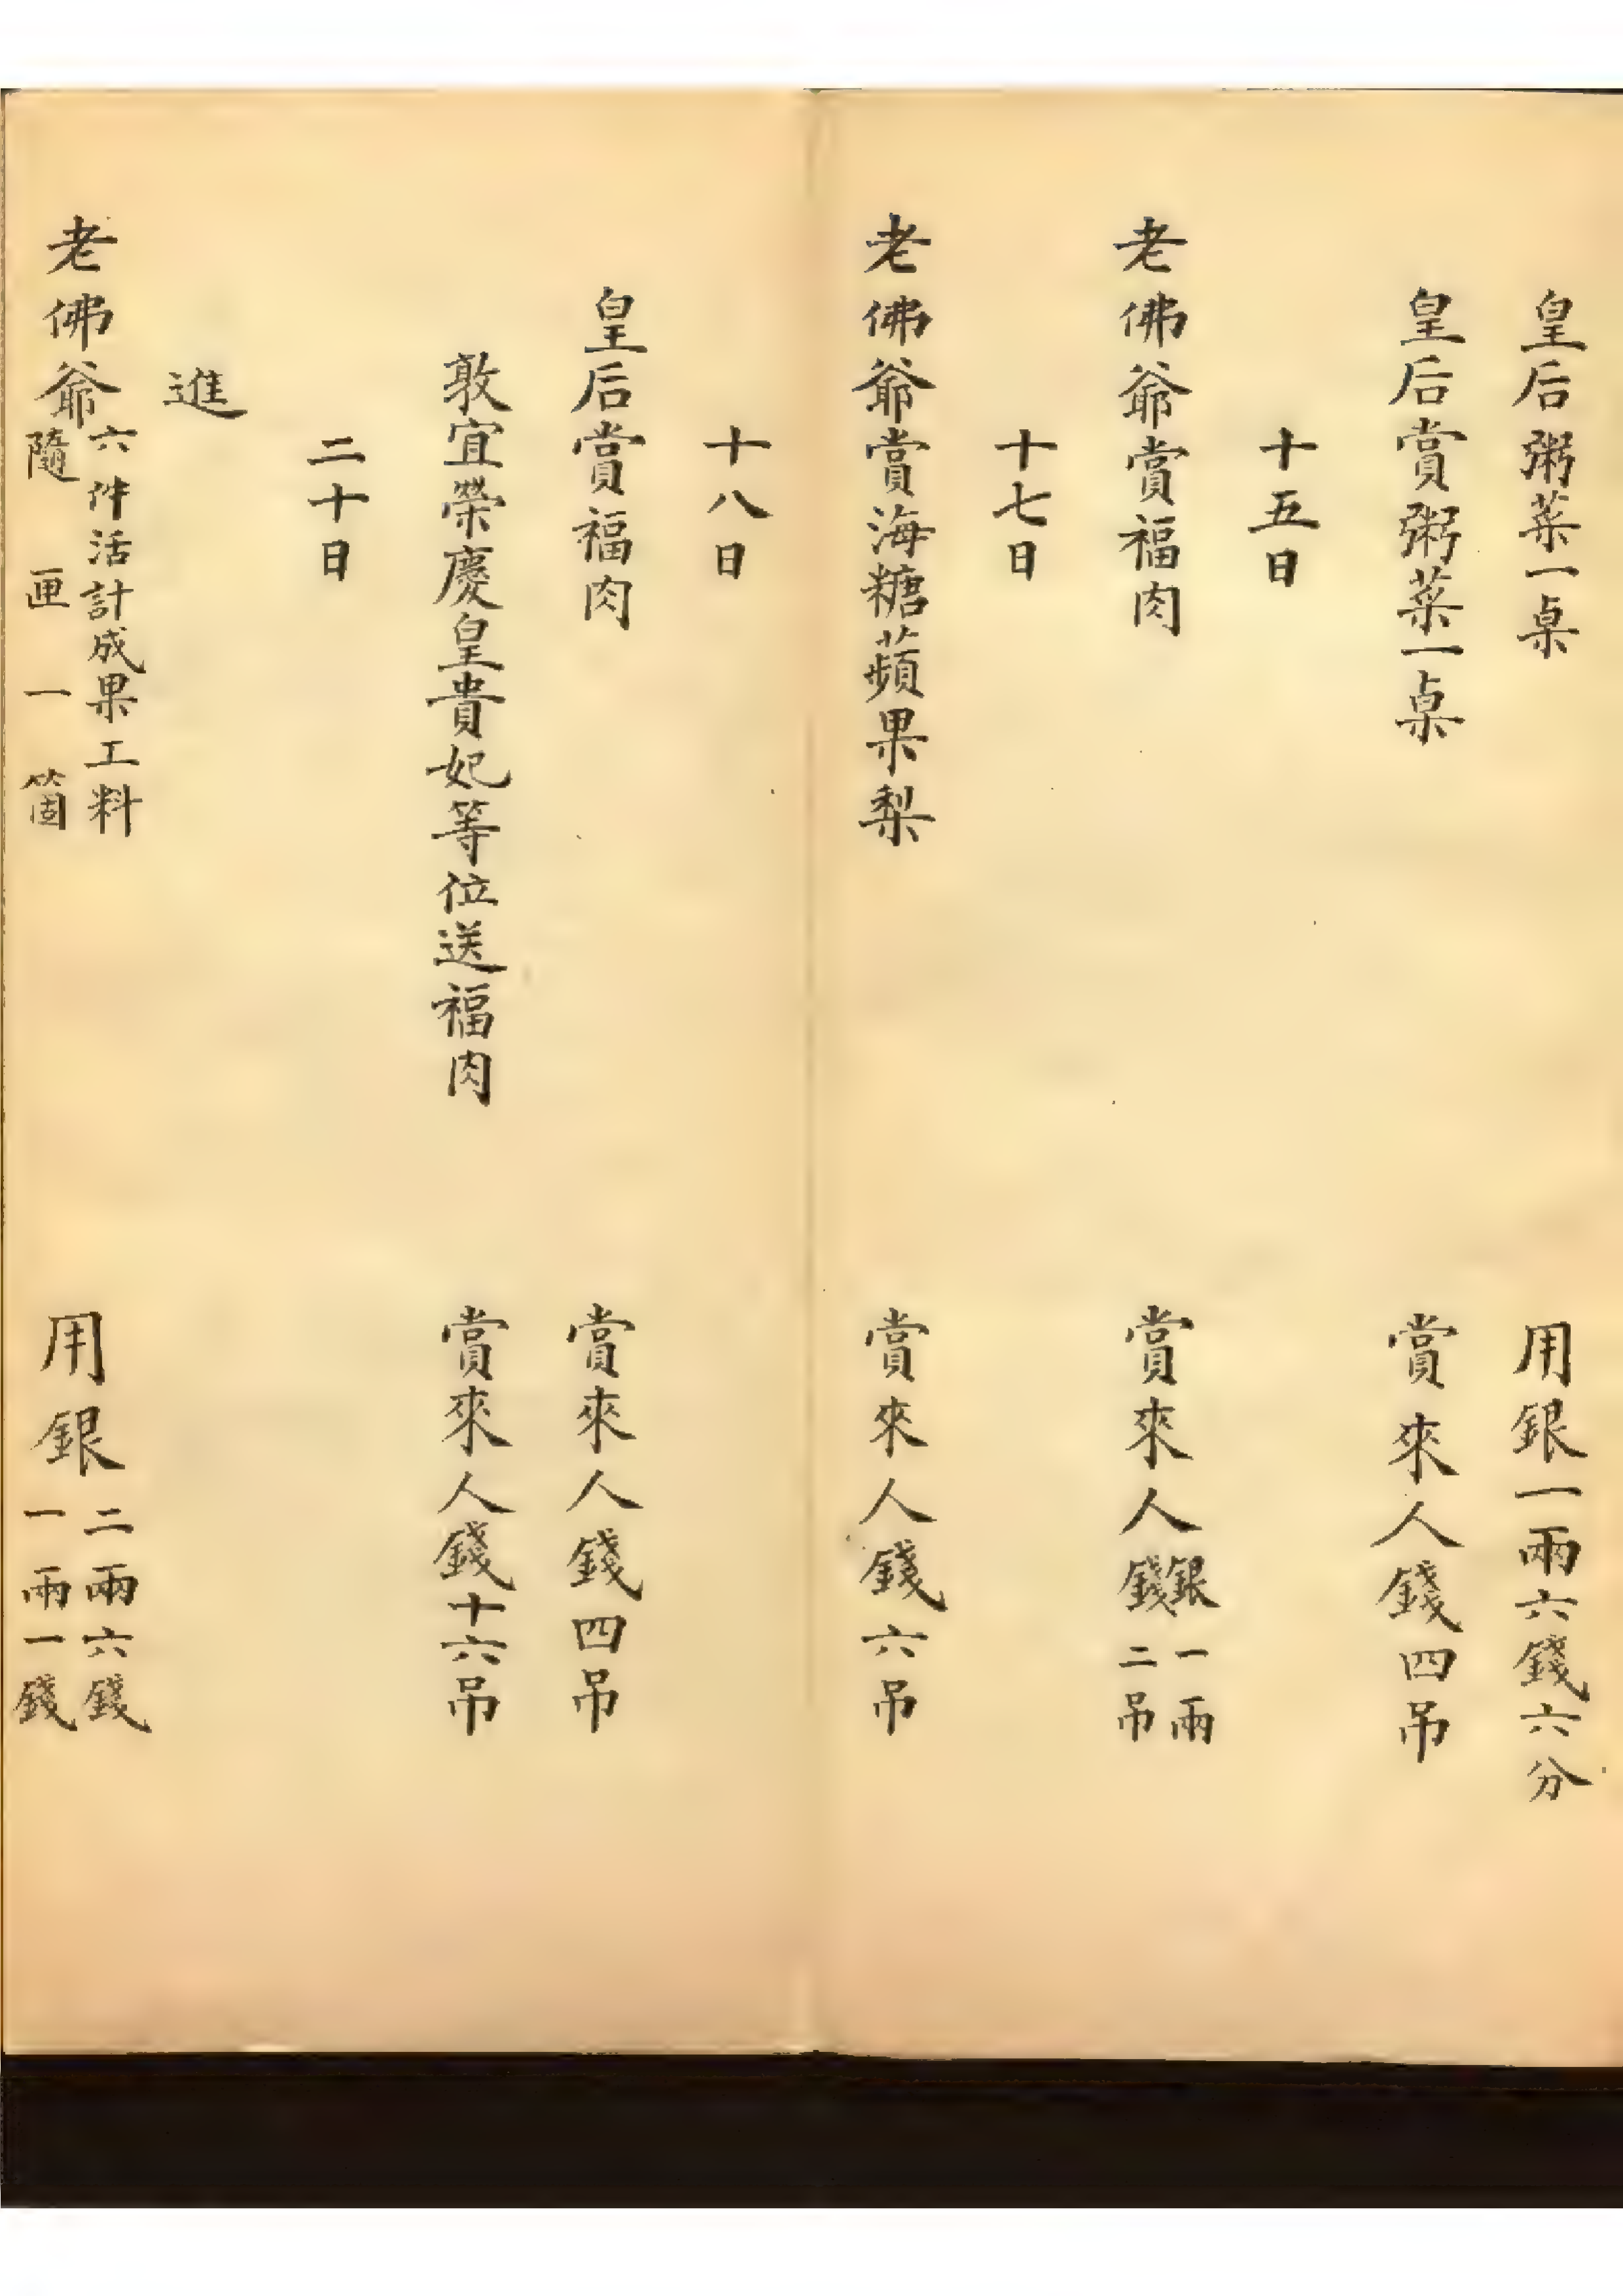 皇后粥菜一桌 用銀一兩六錢六分
皇后賞粥菜一桌 賞來人錢四吊
十五日
老佛爺賞福肉 賞來人銀一兩錢二吊
十七日
老佛爺賞海糖蘋果梨 賞來人錢六吊
十八日
皇后賞福肉 賞來人錢四吊
敦宜榮慶皇貴妃等位送福肉 賞來人錢十六吊
二十日
進
老佛爺六件活計成果工料隨匣一箇 用銀二兩六錢一兩一錢